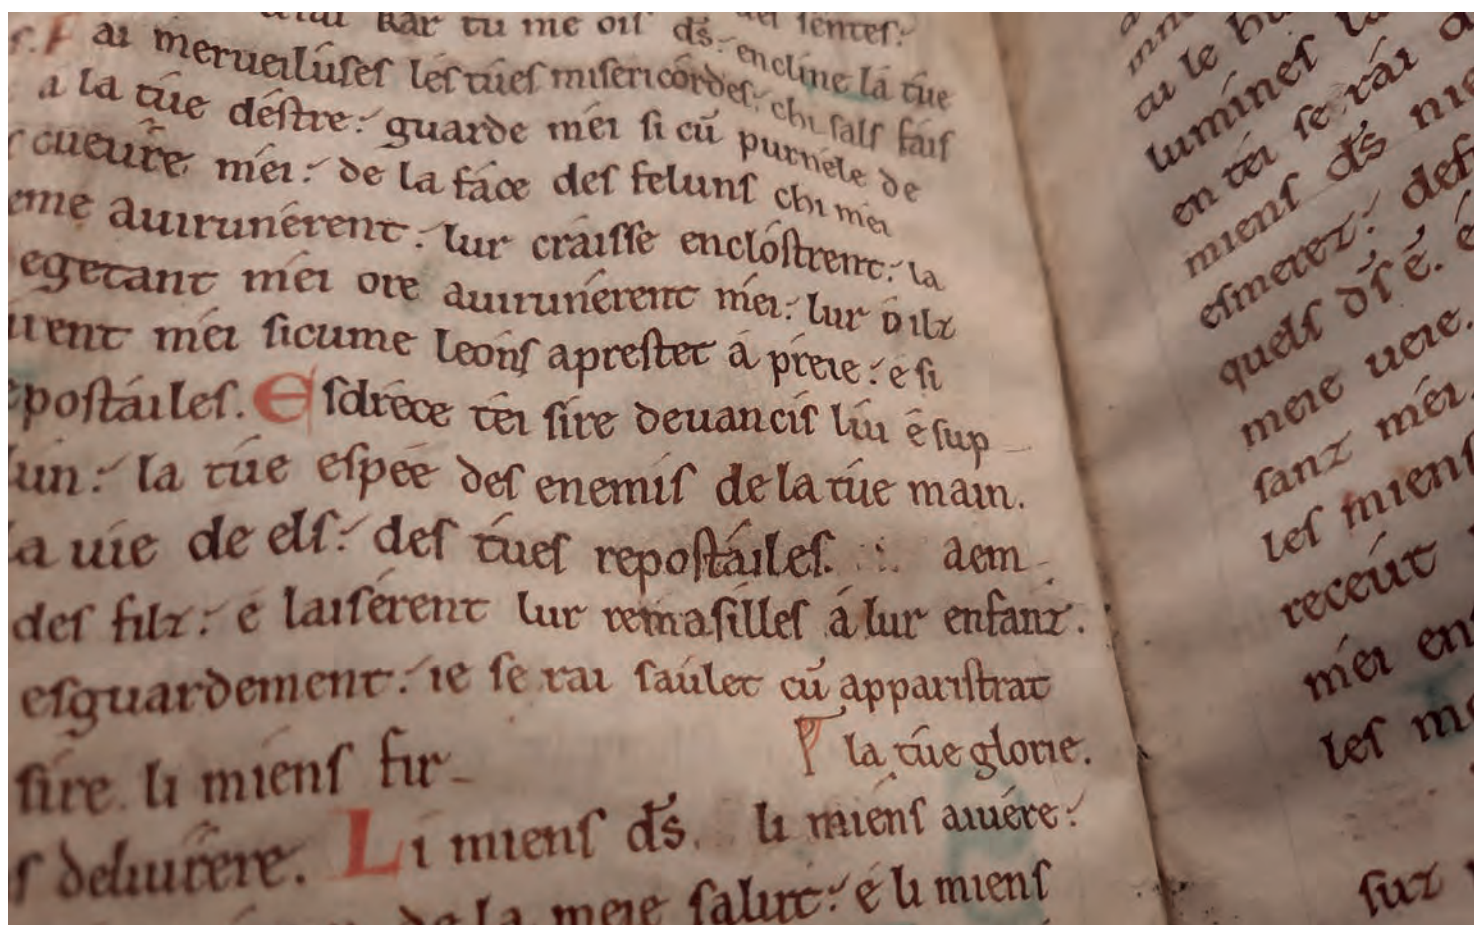 kar tu me oiſ ds̄. encline la túe
ai merueiluſeſ leſ túeſ miſericórdeſ: chi ſalſ faiſ
a la túe déſtre: guarde méi ſi cū purnéle de
cueure méi: de la fáce deſ felunſ chi mei
auirunérent: lur craiſſe enclóſtrent: la
egetant méi ore auirunérent méi: lur oilz
irent méi ſicume leónſ apreſtet á préie: e ſi
poſtáileſ. Eſdréce téi ſire deuanciſ lui é ſup
lun: la túe eſpée deſ enemiſ de la túe main.
a uie de elſ: deſ túeſ repoſtáileſ. aem
deſ filz: é laiſérent lur remaſilleſ á lur enfanz.
eſguardement: ie ſerai ſaúlet cū appariſtrat
¶ la túe glorie.
ſire li mienſ fir-
ſ deliurere. Li mienſ ds̄. li mienſ aiuére:
de la meie ſalut: é li mienſ
tu le
lumíneſ
en téi ſerái
mienſ ds̄
eſmerez: def
quelſ dſ é. é
meie ueie.
ſanz méi.
leſ mienſ
receút
méi en
leſ
ſur